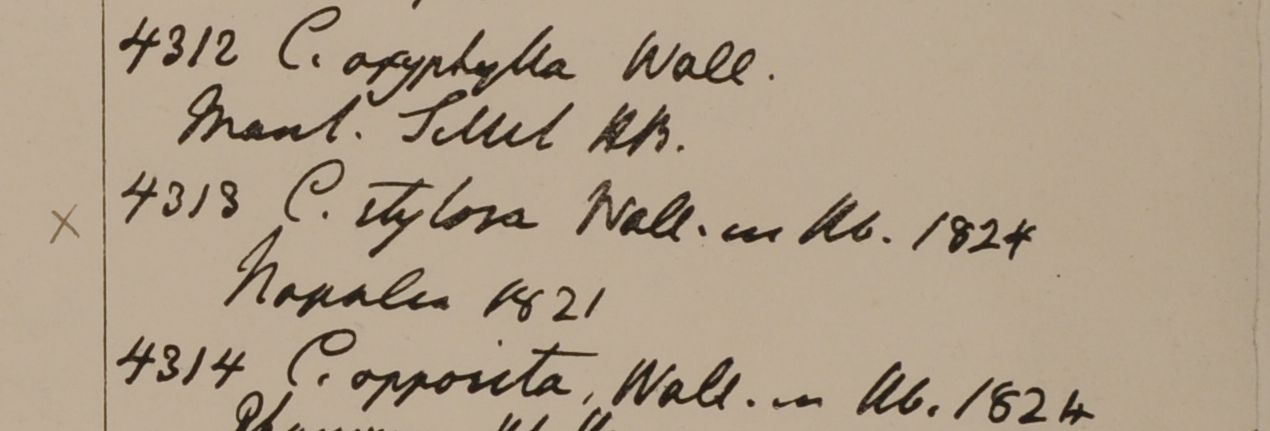 4312 C. oxyphylla Wall.
Mont. Sillet HB.
4313 C. stylosa Wall. in Hb. 1824
Napalia 1821
4314 C. opposita, Wall. in Hb. 1824